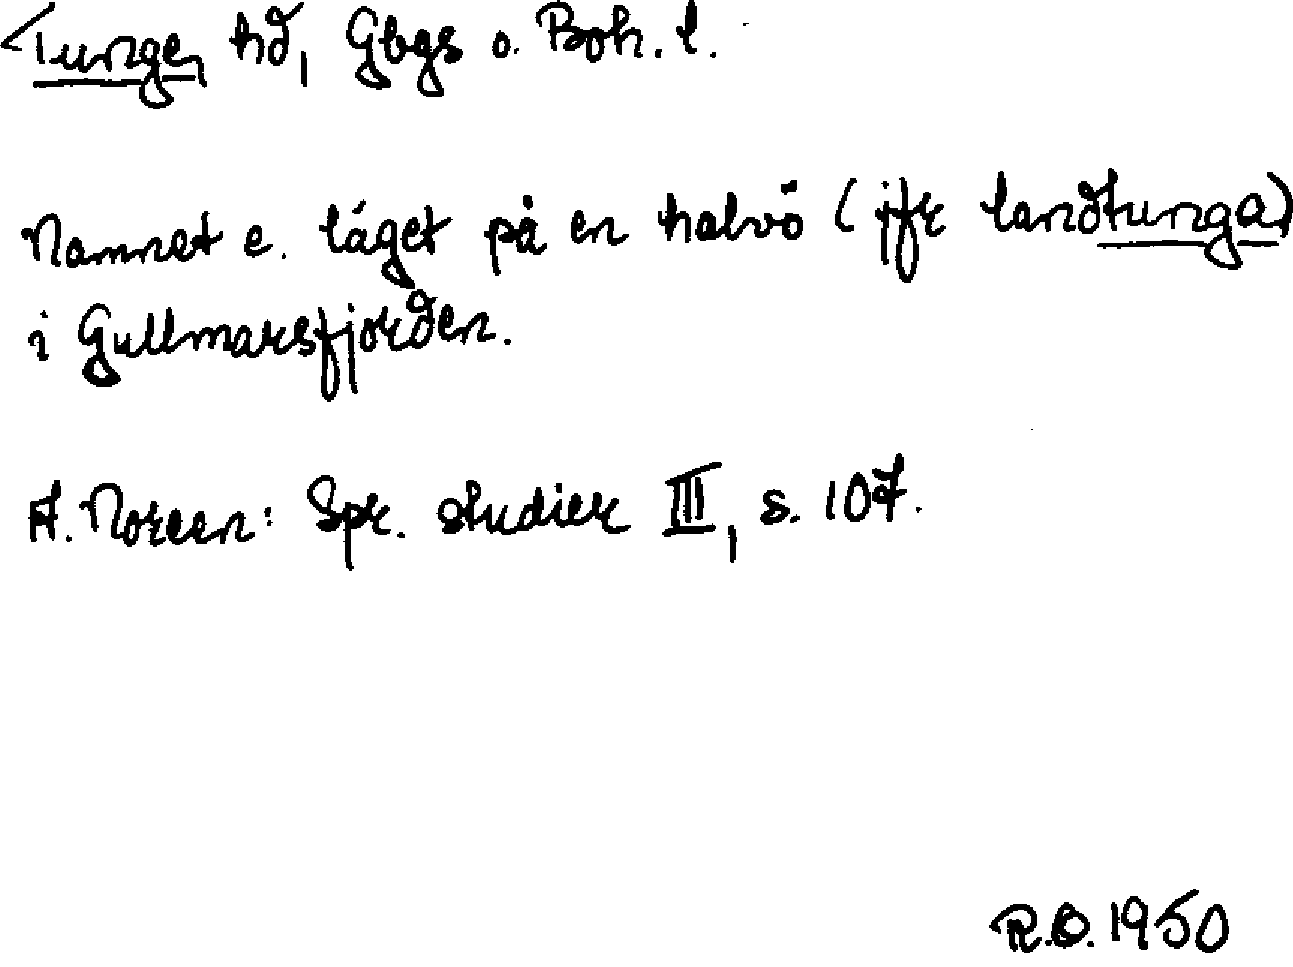 Tunge, hd, Gbgs o. Boh. l.
Namnet e. läget på en halvö (jfr landtunga)
i Gullmarsfjorden.
A. Noreen: Spr. studier III, s. 107.
R.O. 1950